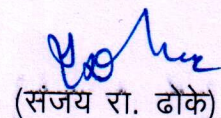 (संजय रा. ढोके)